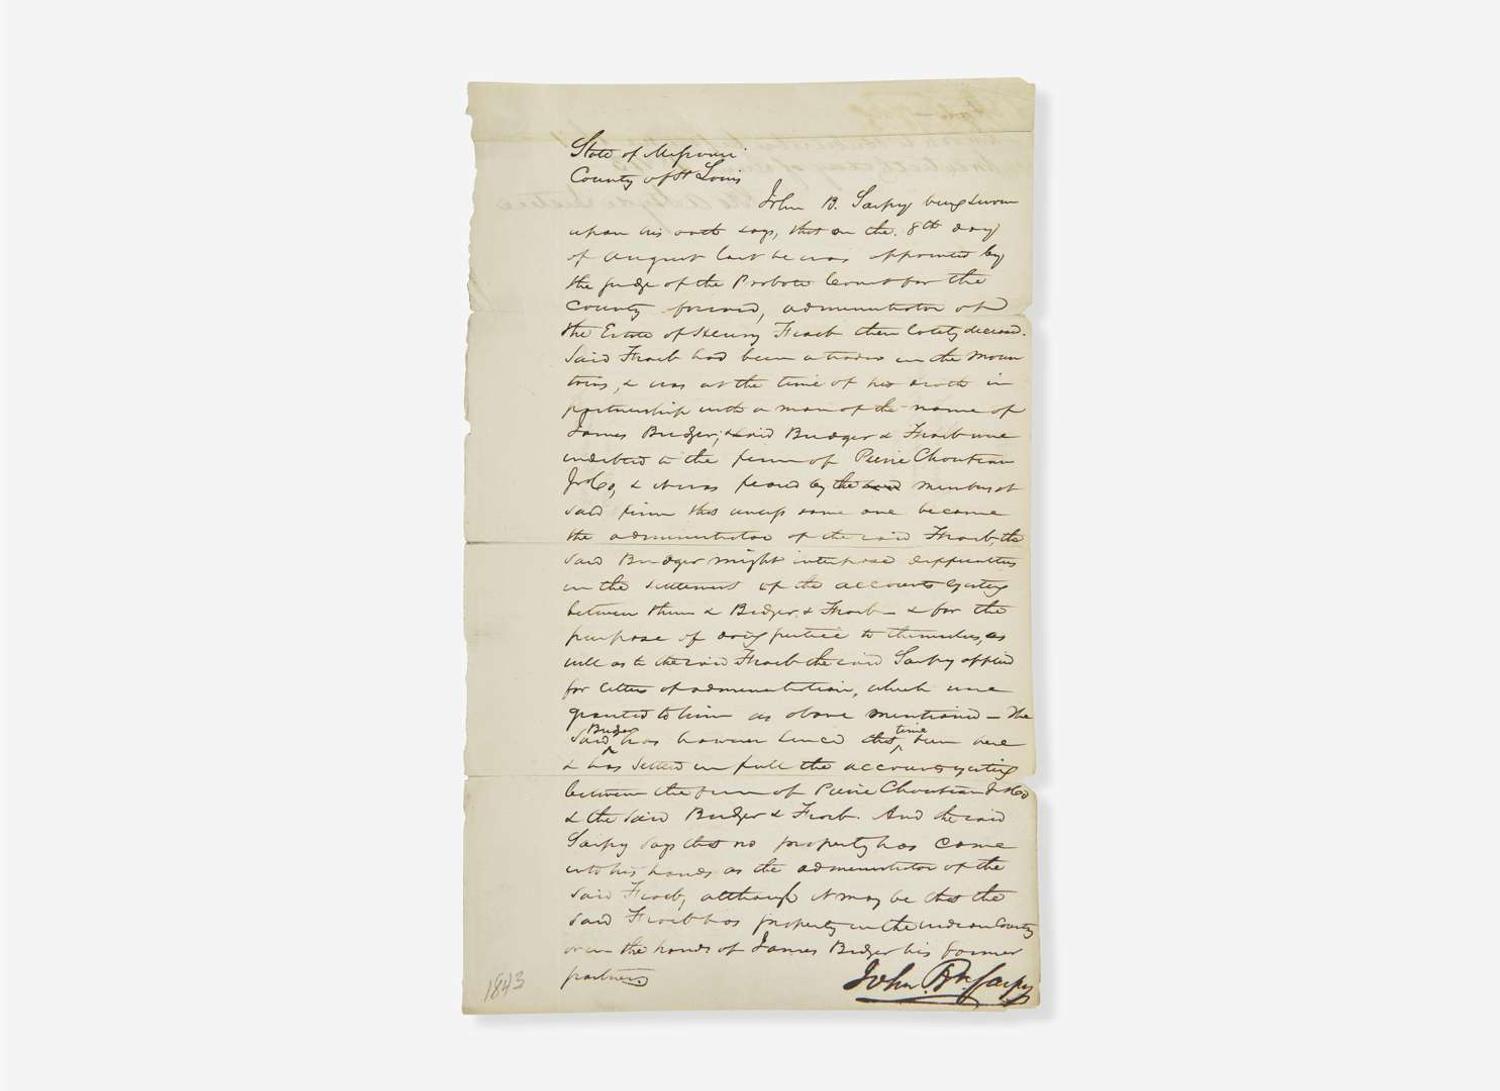 State of Missouri
County of St Louis
John B. Sarpy being sworn
upon his oath says, that on the 8th day
of August last he was appointed by
the judge of the Probate Court for the
County foresaid, administrator of
the Estate of Henry Fraeb then lately deceased.
Said Fraeb had been a trader in the Moun
tains, & was at the time of his death in
partnership with a man of the name of
James Bridger; & said Bridger & Fraeb were
indebted to the firm of Pierre Chouteau
Jr & Co, & it was feared by the members of
said firm that unless some one became
the administrator of the said Fraeb, the
said Bridger might interpose difficulties
in the settlement of the accounts existing
between them & Bridger & Fraeb - & for the
purpose of doing justice to themselves, as
well as to the said Fraeb the said Sarpy applied
for letters of administration, which were
granted to him as above mentioned - The
said Bridger has however since that time been here
& has settled in full the accounts existing
between the firm of Pierre Chouteau Jr & Co
& the said Bridger & Fraeb. And the said
Sarpy says that no property has come
into his hands as the administrator of the
said Fraeb, although it may be that the
said Fraeb has property in the indian Country
or in the hands of James Bridger his former
partner.
John B. Sarpy
1843